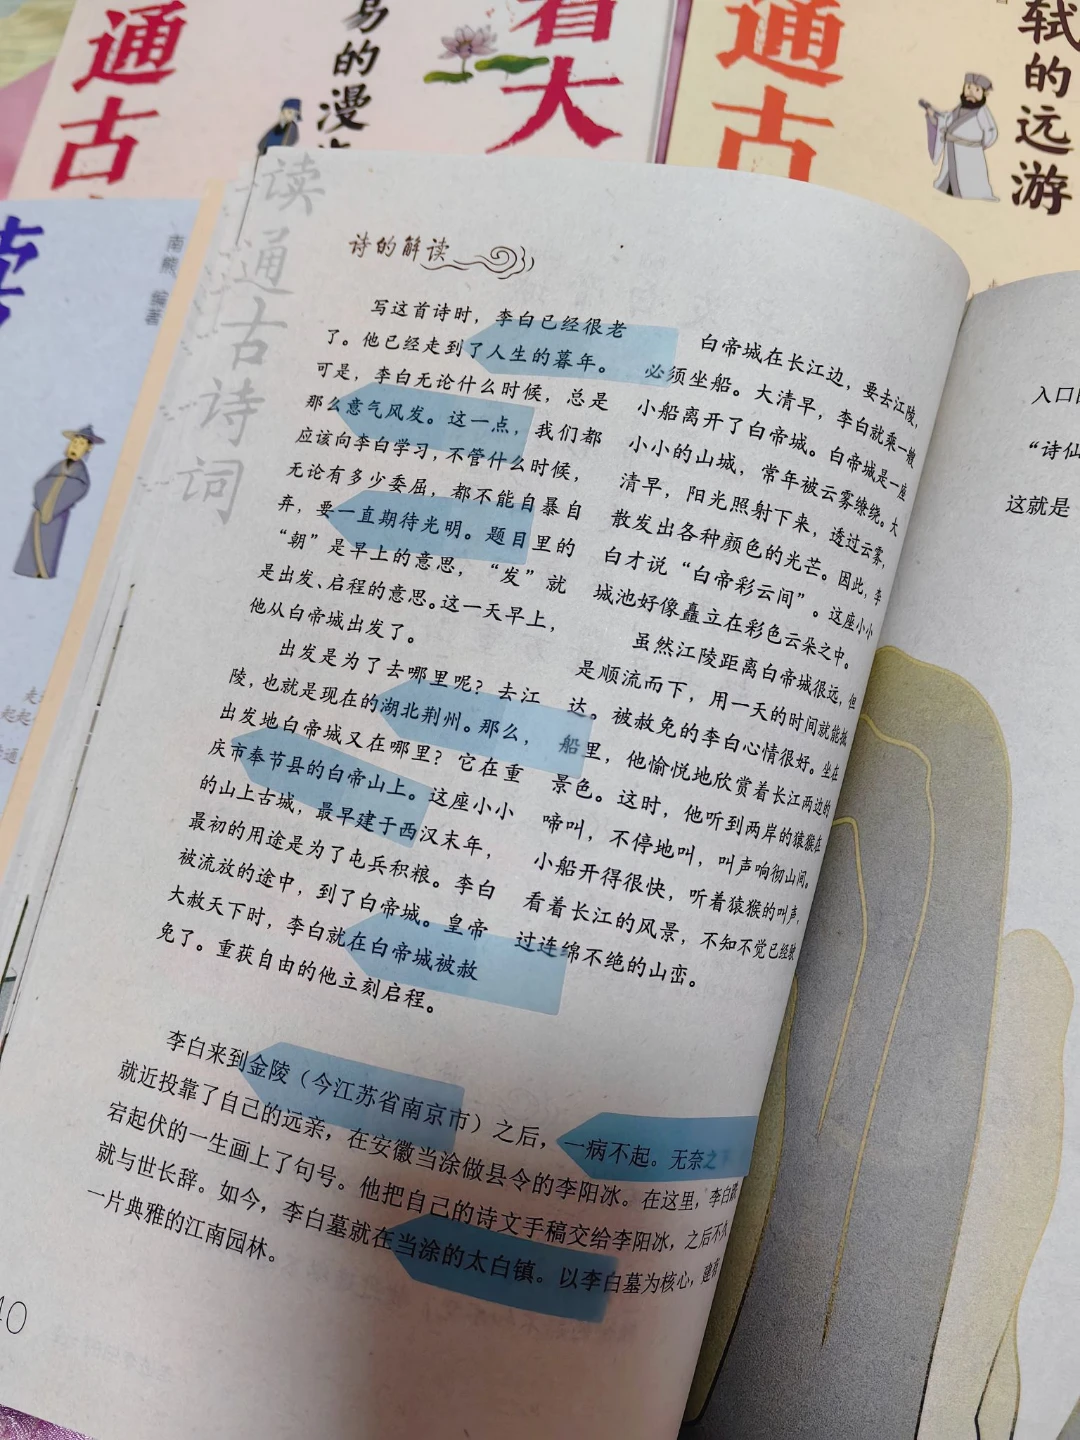 通古
易的漫
看大
通古
轼的远游
读
南熊 编著
读通古诗词
诗的解读
写这首诗时，李白已经很老
了。他已经走到了人生的暮年。
可是，李白无论什么时候，总是
那么意气风发。这一点，我们都
应该向李白学习，不管什么时候，
无论有多少委屈，都不能自暴自
弃，要一直期待光明。题目里的
“朝”是早上的意思，“发”就
是出发、启程的意思。这一天早上，
他从白帝城出发了。
出发是为了去哪里呢？去江
陵，也就是现在的湖北荆州。那么，
出发地白帝城又在哪里？它在重
庆市奉节县的白帝山上。这座小小
的山上古城，最早建于西汉末年，
最初的用途是为了屯兵积粮。李白
被流放的途中，到了白帝城。皇帝
大赦天下时，李白就在白帝城被赦
免了。重获自由的他立刻启程。
白帝城在长江边，要去江陵，
必须坐船。大清早，李白就乘一艘
小船离开了白帝城。白帝城是一座
小小的山城，常年被云雾缭绕。大
清早，阳光照射下来，透过云雾，
散发出各种颜色的光芒。因此，李
白才说“白帝彩云间”。这座小小
城池好像矗立在彩色云朵之中。
虽然江陵距离白帝城很远，但
是顺流而下，用一天的时间就能抵
达。被赦免的李白心情很好。坐在
船里，他愉悦地欣赏着长江两边的
景色。这时，他听到两岸的猿猴在
啼叫，不停地叫，叫声响彻山间。
小船开得很快，听着猿猴的叫声，
看着长江的风景，不知不觉已经驶
过连绵不绝的山峦。
李白来到金陵（今江苏省南京市）之后，一病不起。无奈之下
就近投靠了自己的远亲，在安徽当涂做县令的李阳冰。在这里，李白
宕起伏的一生画上了句号。他把自己的诗文手稿交给李阳冰，之后不久
就与世长辞。如今，李白墓就在当涂的太白镇。以李白墓为核心，建
一片典雅的江南园林。
40
入口
“诗仙
这就是